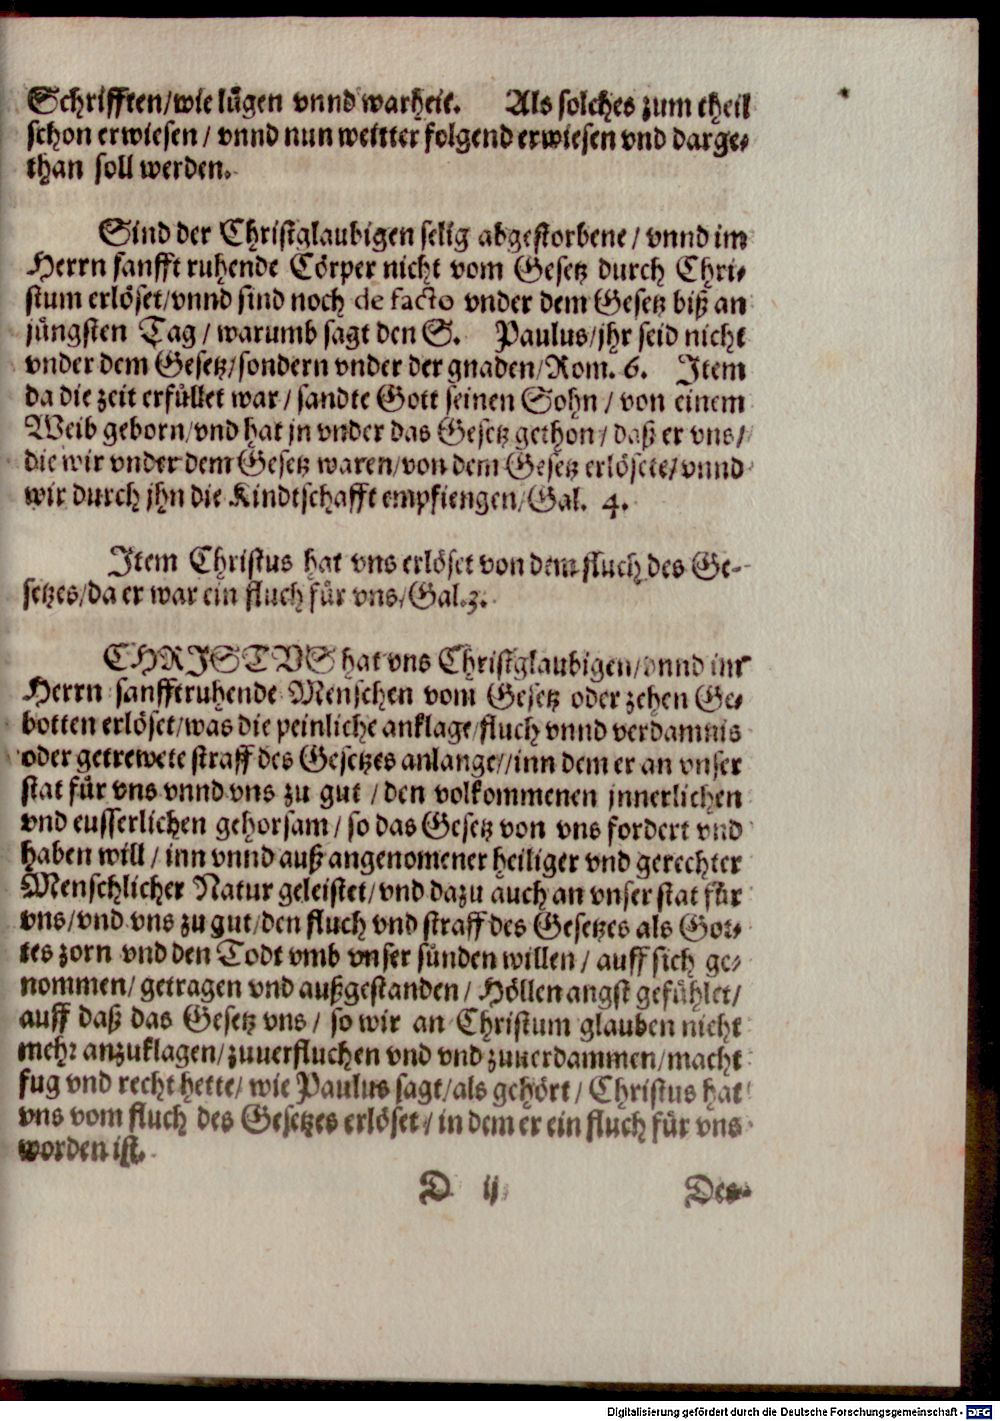 Schrifften/wie lügen vnnd warheit. Als solches zum theil
schon erwiesen / vnnd nun weitter folgend erwiesen vnd darge-
than soll werden.
Sind der Christglaubigen selig abgestorbene / vnnd im
Herrn sanfft ruhende Cörper nicht vom Gesetz durch Chri-
stum erlöset/vnnd sind noch de facto vnder dem Gesetz biß an
jüngsten Tag / warumb sagt den S. Paulus/jhr seid nicht
vnder dem Gesetz/sondern vnder der gnaden/Rom. 6. Item
da die zeit erfüllet war / sandte Gott seinen Sohn / von einem
Weib geborn/vnd hat jn vnder das Gesetz gethon / daß er vns/
die wir vnder dem Gesetz waren/von dem Gesetz erlösete/vnnd
wir durch jhn die Kindtschafft empfiengen/Gal. 4.
Item Christus hat vns erlöset von dem fluch des Ge-
setzes/da er war ein fluch für vns/Gal.3.
CHRISTVS hat vns Christglaubigen/vnnd im
Herrn sanfftruhende Menschen vom Gesetz oder zehen Ge-
botten erlöset/was die peinliche anklage/fluch vnnd verdamnis
oder getrewete straff des Gesetzes anlange//inn dem er an vnser
stat für vns vnnd vns zu gut / den volkommenen jnnerlichen
vnd eusserlichen gehorsam / so das Gesetz von vns fordert vnd
haben will / inn vnnd auß angenomener heiliger vnd gerechter
Menschlicher Natur geleistet/vnd dazu auch an vnser stat für
vns/vnd vns zu gut/den fluch vnd straff des Gesetzes als Got-
tes zorn vnd den Todt vmb vnser sünden willen / auff sich ge-
nommen/ getragen vnd außgestanden / Höllen angst gefühlet/
auff daß das Gesetz vns / so wir an Christum glauben nicht
mehr anzuklagen/zuuerfluchen vnd vnd zuuerdammen/macht
fug vnd recht hette/ wie Paulus sagt/als gehört / Christus hat
vns vom fluch des Gesetzes erlöset / in dem er ein fluch für vns
worden ist.
D ij
Des-
Digitalisierung gefördert durch die Deutsche Forschungsgemeinschaft - DFG